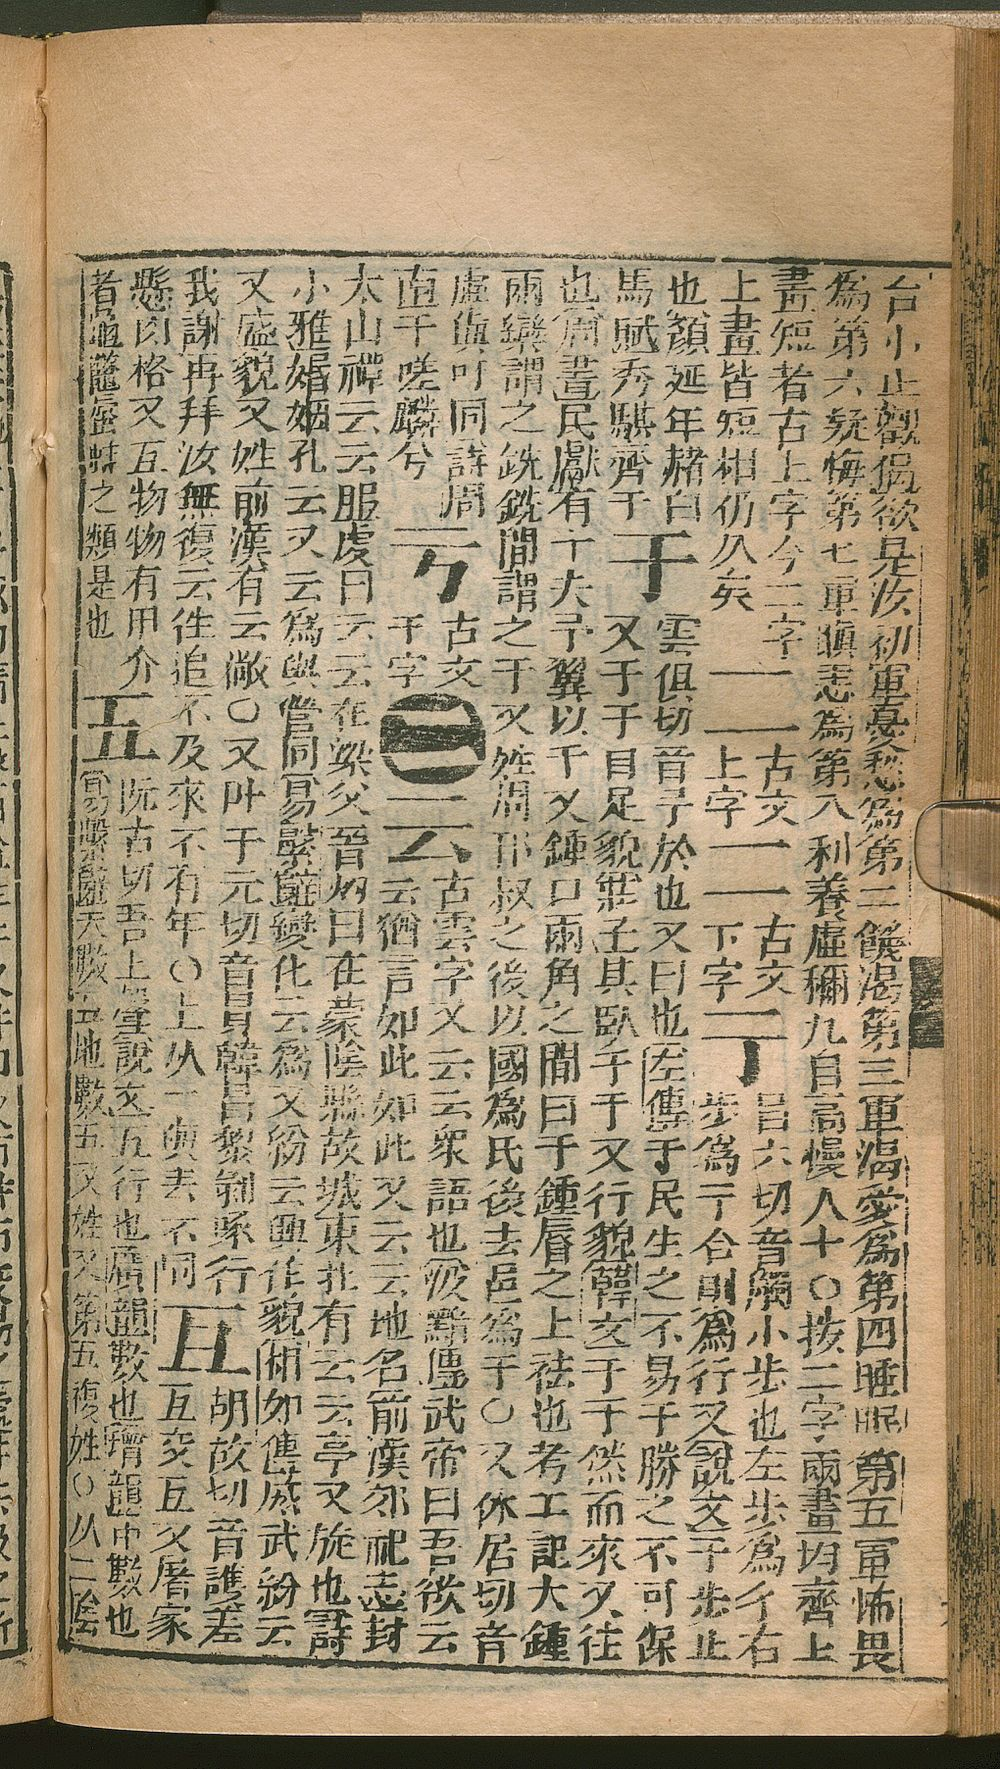 台小止觀偈欲是汝初軍憂愁為第二饑渴第三軍渴愛為第四睡眠第五軍怖畏
為第六疑悔第七軍瞋恚為第八利養虛稱九自高慢人十○按二字兩畫均齊上
畫短者古上字今二字一一古文一一古文亍丑六切音觸小步也左步為彳右
上畫皆短相仍久矣一一上字一一下字亍步為亍合則為行又說文亍步止
也顏延年赭白于雲俱切音予於也又曰也左傳于民生之不易于勝之不可保
馬賦秀騏齊于于又于于目足貌莊子其臥于于又行貌韓文于于然而來又往
也周書民獻有十夫予翼以于又鍾口兩角之間曰于鍾脣之上袪也考工記大鍾
兩欒謂之銑銑間謂之于又姓周邘叔之後以國為氏後去邑為于○又休居切音
虛偽吁同詩周亏古文二云古雲字又云云衆語也汲黯傳武帝曰吾欲云
南于嗟麟兮亏于字二云云猶言如此如此又云云地名前漢郊祀志封
太山禪云云服虔曰云云在梁父晉灼曰在蒙陰縣故城東北有云云亭又旋也詩
小雅婚姻孔云又云為與當同易繫辭變化云為又紛云興作貌相如傳威武紛云
又盛貌又姓前漢有云敞○又叶于元切音員韓昌黎剝啄行互胡故切音護差
我謝再拜汝無復云往追不及來不有年○上从一與去不同互互交互又屠家
懸肉格又互物物有甲介五阮古切吾上聲說文五行也廣韻數也增韻中數也
者龜鼈蜃蚌之類是也五易繫辭天數五地數五又姓又第五複姓○从二陰